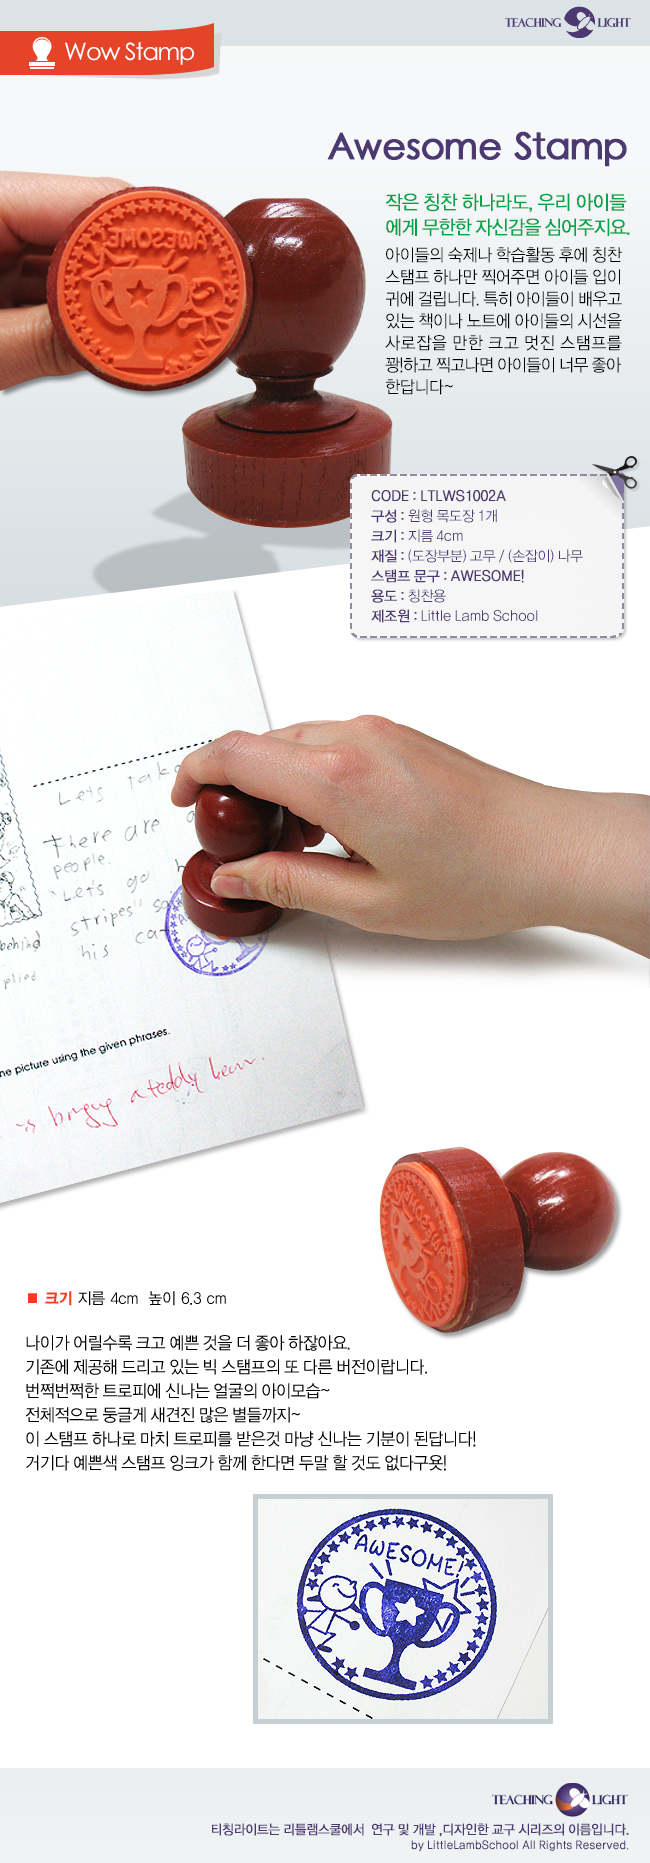 TEACHING LIGHT
Wow Stamp
Awesome Stamp
작은 칭찬 하나라도, 우리 아이들
에게 무한한 자신감을 심어주지요.
아이들의 숙제나 학습활동 후에 칭찬
스탬프 하나만 찍어주면 아이들 입이
귀에 걸립니다. 특히 아이들이 배우고
있는 책이나 노트에 아이들의 시선을
사로잡을 만한 크고 멋진 스탬프를
꽝!하고 찍고나면 아이들이 너무 좋아
한답니다~
CODE : LTLWS1002A
구성 : 원형 목도장 1개
크기 : 지름 4cm
재질 : (도장부분) 고무 / (손잡이) 나무
스탬프 문구 : AWESOME!
용도 : 칭찬용
제조원 : Little Lamb School
Lets take
there are
people.
"Let's go
stripes" so
his cat
behind
plied
ne picture using the given phrases.
is a teddy bear.
■ 크기 지름 4cm 높이 6.3 cm
나이가 어릴수록 크고 예쁜 것을 더 좋아 하잖아요.
기존에 제공해 드리고 있는 빅 스탬프의 또 다른 버전이랍니다.
번쩍번쩍한 트로피에 신나는 얼굴의 아이모습~
전체적으로 둥글게 새겨진 많은 별들까지~
이 스탬프 하나로 마치 트로피를 받은것 마냥 신나는 기분이 된답니다!
거기다 예쁜색 스탬프 잉크가 함께 한다면 두말 할 것도 없다구욧!
AWESOME!
TEACHING LIGHT
티칭라이트는 리틀램스쿨에서 연구 및 개발 ,디자인한 교구 시리즈의 이름입니다.
by LittleLambSchool All Rights Reserved.